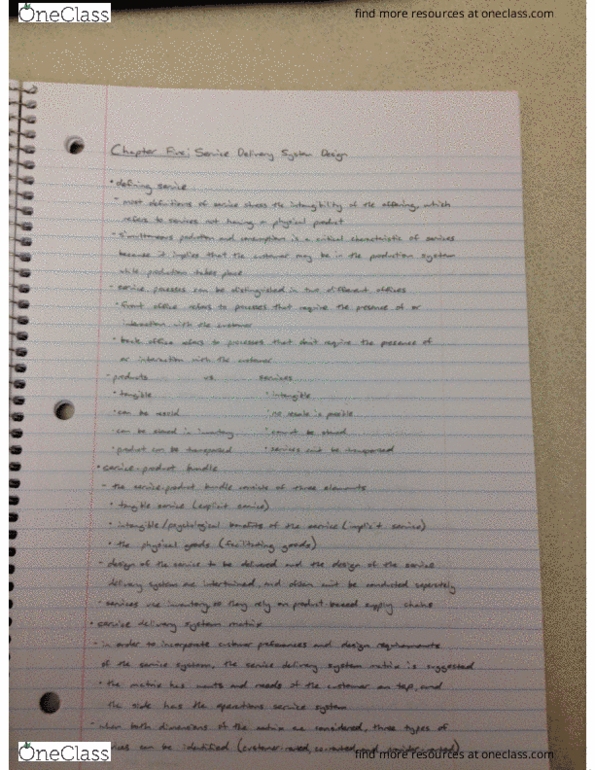 OneClass
find more resources at oneclass.com
Chapter Five: Service Delivery System Design
• defining service
- most definitions of service stress the intangibility of the offering, which
refers to services not having a physical product
- simultaneous production and consumption is a critical characteristic of services
because it implies that the customer may be in the production system
while production takes place
- service processes can be distinguished in two different offices
• front office refers to processes that require the presence of or
interaction with the customer
• back office refers to processes that don't require the presence of
or interaction with the customer
- products vs. services
• tangible • intangible
• can be resold • no resale is possible
• can be stored in inventory • cannot be stored
• product can be transported • services can't be transported
• service-product bundle
- the service-product bundle consists of three elements
• tangible service (explicit service)
• intangible/psychological benefits of the service (implicit service)
• the physical goods (facilitating goods)
- design of the service to be delivered and the design of the service
delivery system are intertwined, and often can't be conducted seperately
- services use inventory so they rely on product-based supply chains
• service delivery system matrix
- in order to incorporate customer preferences and design requirements
of the service system, the service delivery system matrix is suggested
• the matrix has wants and needs of the customer on top, and
the side has the operations service system
- when both dimensions of the matrix are considered, three types of
can be identified (customer-routed, co-routed, and
OneClass
find more resources at oneclass.com